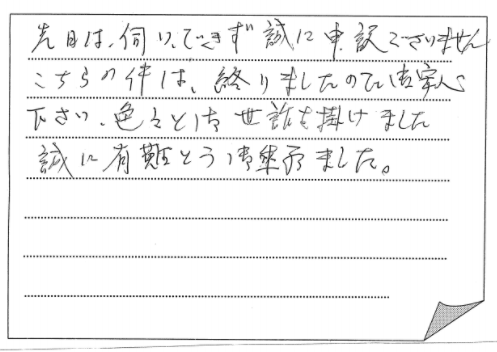 先日は、伺いできず誠に申訳ございません
こちらの件は、終りましたので御安心
下さい、色々と御世話を掛けました
誠に有難とう御座ゐました。